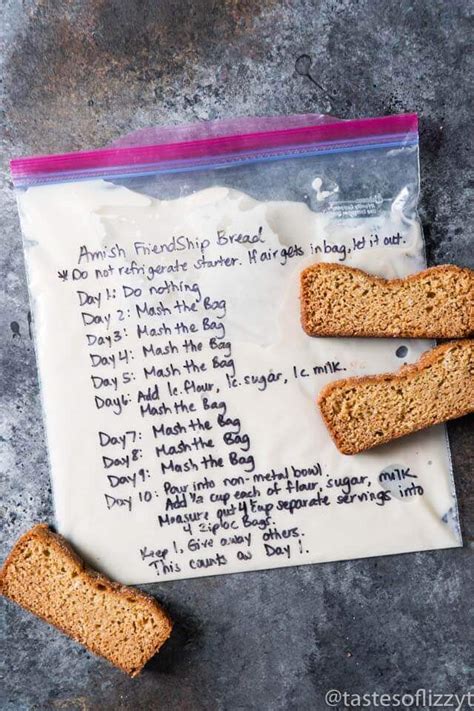 Amish FriendShip Bread
* Do not refrigerate starter. If air gets in bag, let it out.
Day 1: Do nothing
Day 2: Mash the Bag
Day 3: Mash the Bag
Day 4: Mash the Bag
Day 5: Mash the Bag
Day 6: Add 1c. flour, 1c. sugar, 1c. milk.
Mash the Bag
Day 7: Mash the Bag
Day 8: Mash the Bag
Day 9: Mash the Bag
Day 10: Pour into non-metal bowl.
Add 1/2 cup each of flour, sugar, milk
Measure out 4 1 cup separate servings into
4 Ziploc Bags.
Keep 1, Give away others.
This counts as Day 1.
@tastesoflizzyt